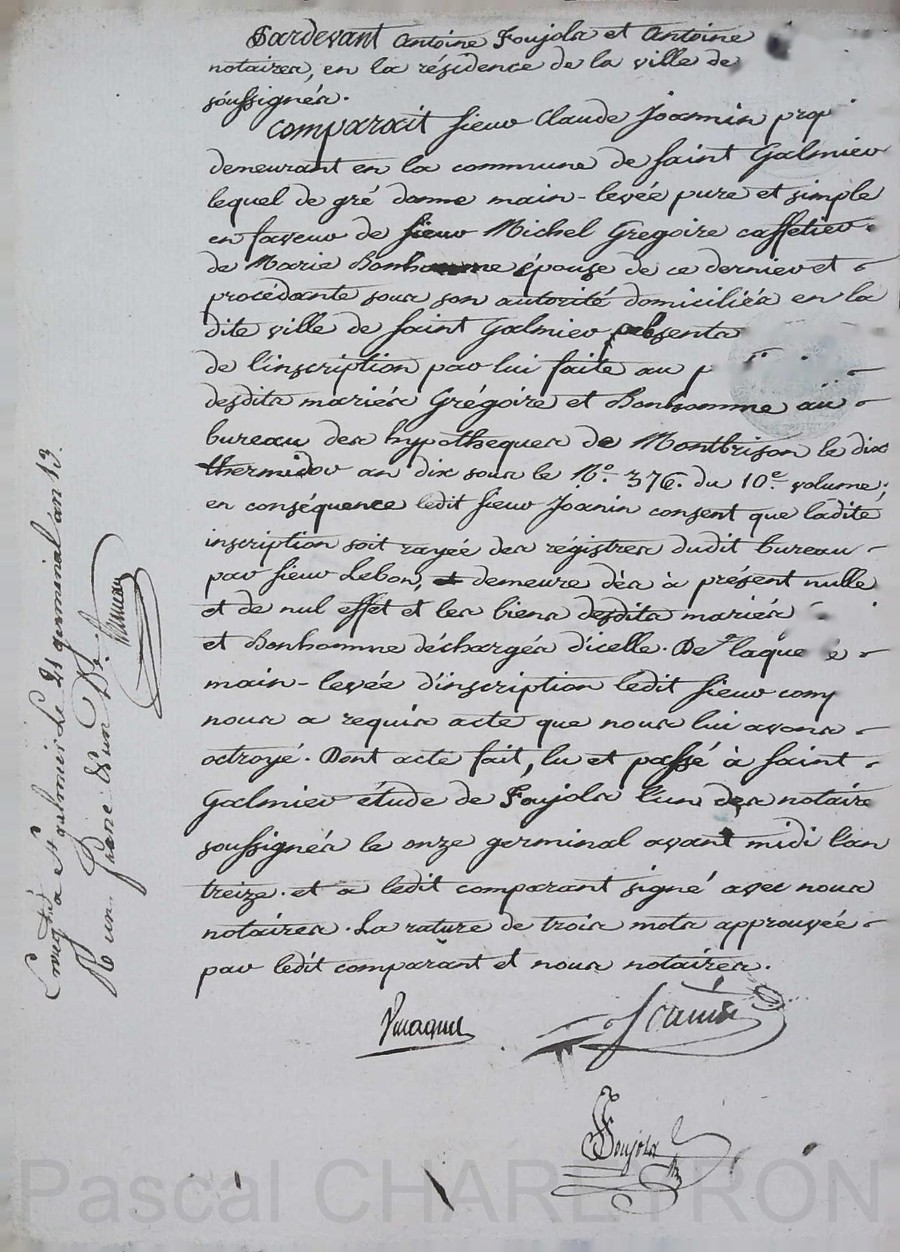 Pardevant Antoine Foujols et Antoine
notaires, en la résidence de la ville de
soussignés.
Comparait sieur Claude Joannin prop
demeurant en la commune de Saint Galmier
lequel de gré donne main-levée pure et simple
en faveur de sieur Michel Gregoire caffetier
de Marie Bonhomme épouse de ce dernier et
procédante sous son autorité domiciliés en la
dite ville de Saint Galmier
de l'inscription par lui faite au p
desdits mariés Grégoire et Bonhomme au
bureau des hypotheques de Montbrison le dix
thermidor an dix sous le No. 376. du 10e. volume;
en conséquence ledit sieur Joanin consent que ladite
inscription soit rayée des régistres dudit bureau
par sieur Lebon, demeure dès à présent nulle
et de nul effet et les biens desdits mariés
et Bonhomme déchargés d'icelle. De laquelle
main-levée d'inscription ledit sieur comp
nous a requis acte que nous lui avons
octroyé. Dont acte fait, lu et passé à Saint
Galmier étude de Foujols l'un des notaire
soussignés le onze germinal avant midi l'an
treize. et a ledit comparant signé avec nous
notaires. La rature de trois mots approuvée
par ledit comparant et nous notaires.
Joanin
Foujols
Enreg.tré à St galmier le 21 germinal an 13.
R un franc
Pascal CHARLEYRON